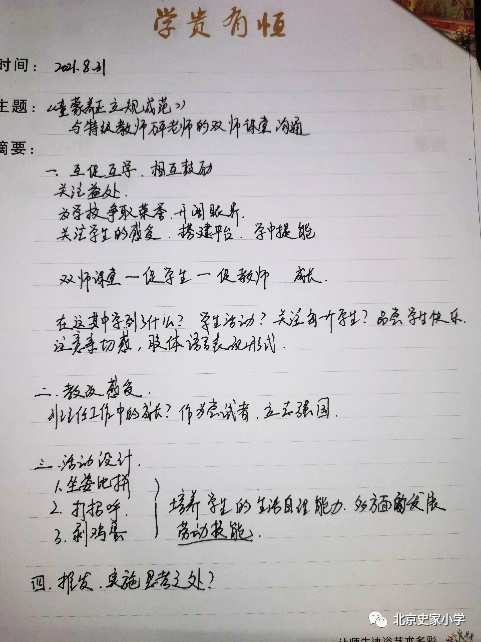 学贵有恒
时间：2021.8.31
主题：《童蒙养正 立规成范》
与特级教师万平老师的双师课堂沟通
摘要：
一、互促互学，相互鼓励
关注益处
为学校争取荣誉，开阔眼界
关注学生的感受，搭建平台，学中提能
双师课堂—促学生—促教师 成长
在这其中学到了什么？学生活动？关注每个学生？品尝学生快乐
注意亲切感，肢体语言表现形式
二、教改感受
班主任工作中的成长？作为尝试者，立志强国
三、活动设计
1、坐姿比拼
2、打招呼
3、剥鸡蛋
培养学生的生活自理能力，多方面的发展
劳动技能
四、 实施思考之处？
北京史家小学
让师生沐浴艺术多彩